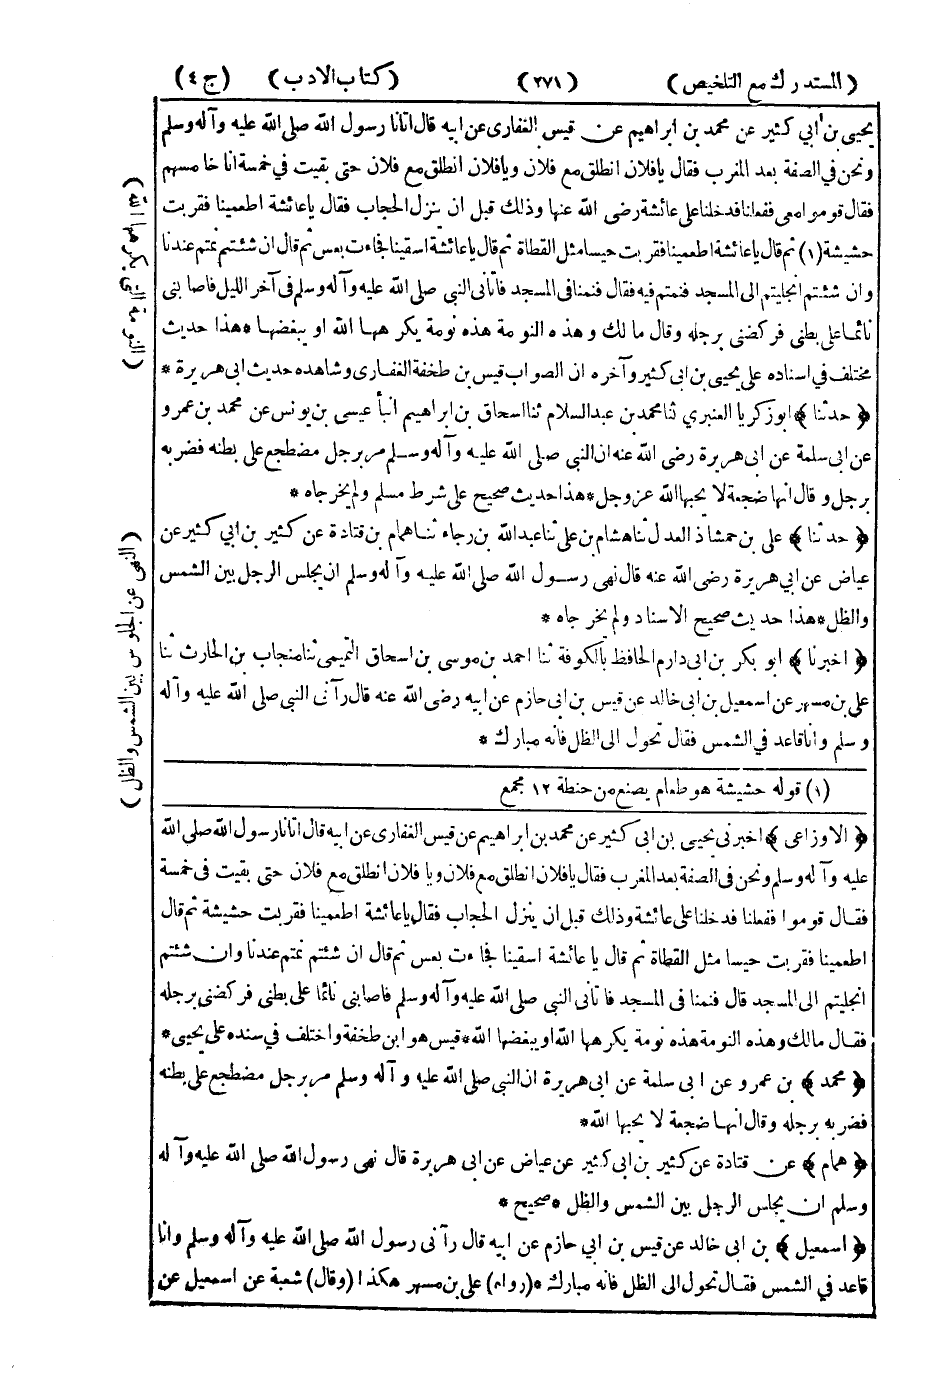 (المستدرك مع التلخيص) (٢٧١) (كتاب الادب) (ج٤)
يحيى بن ابي كثير عن محمد بن ابراهيم عن قيس الغفارى عن ابيه قال اتانا رسول الله صلى الله عليه وآله وسلم
ونحن في الصفة بعد المغرب فقال يافلان انطلق مع فلان ويافلان انطلق مع فلان حتى بقيت في خمسة انا خامسهم
فقال قوموا معى ففعلنا فدخلنا على عائشة رضى الله عنها وذلك قبل ان ينزل الحجاب فقال ياعائشة اطعمينا فقربت
حشيشة (١) ثم قال ياعائشة اطعمينا فقربت حيسا مثل القطاة ثم قال ياعائشة اسقينا فجاءت بعس ثم قال ان شئتم نمتم عندنا
وان شئتم انجليتم الى المسجد فنمتم فيه فقال فنمنا فى المسجد فأتانى النبي صلى الله عليه وآله وسلم فى آخر الليل فاصابنى
نائما على بطنى فركضنى برجله وقال مالك وهذه النومة هذه نومة يكرهها الله او يبغضها * هذا حديث
مختلف في اسناده على يحيى بن ابى كثير وآخره ان الصواب قيس بن طخفة الغفارى وشاهده حديث ابى هريرة *
﴿ حدثنا ﴾ ابو زكريا العنبري ثنا محمد بن عبدالسلام ثنا اسحاق بن ابراهيم انبأ عيسى بن يونس عن محمد بن عمرو
عن ابى سلمة عن ابى هريرة رضى الله عنه ان النبي صلى الله عليه وآله وسلم مر برجل مضطجع على بطنه فضربه
برجله وقال انها ضجعة لا يحبها الله عز وجل * هذا حديث صحيح على شرط مسلم ولم يخرجاه *
﴿ حدثنا ﴾ على بن حمشاذ العدل ثنا هشام بن على ثنا عبدالله بن رجاء ثنا همام بن قتادة عن كثير بن ابي كثير عن
عياض عن ابي هريرة رضى الله عنه قال نهى رسول الله صلى الله عليه وآله وسلم ان يجلس الرجل بين الشمس
والظل * هذا حديث صحيح الاسناد ولم يخرجاه *
﴿ اخبرنا ﴾ ابو بكر بن ابى دارم الحافظ بالكوفة ثنا احمد بن موسى بن اسحاق التميمى ثنا منجاب بن الحارث ثنا
على بن مسهر عن اسمعيل بن ابى خالد عن قيس بن ابى حازم عن ابيه رضى الله عنه قال رآنى النبي صلى الله عليه وآله
وسلم وانا قاعد في الشمس فقال تحول الى الظل فانه مبارك *
(١) قوله حشيشة هو طعام يصنع من حنطة ١٢ مجمع
﴿ الاوزاعى ﴾ اخبرنى يحيى بن ابى كثير عن محمد بن ابراهيم عن قيس الغفارى عن ابيه قال اتانا رسول الله صلى الله
عليه وآله وسلم ونحن فى الصفة بعد المغرب فقال يافلان انطلق مع فلان ويا فلان انطلق مع فلان حتى بقيت فى خمسة
فقال قوموا ففعلنا فدخلنا على عائشة وذلك قبل ان ينزل الحجاب فقال ياعائشة اطعمينا فقربت حشيشة ثم قال
اطعمينا فقربت حيسا مثل القطاة ثم قال ياعائشة اسقينا فجاءت بعس ثم قال ان شئتم نمتم عندنا وان شئتم
انجليتم الى المسجد قال فنمنا فى المسجد فأتانى النبي صلى الله عليه وآله وسلم فاصابنى نائما على بطنى فركضنى برجله
فقال مالك وهذه النومة هذه نومة يكرهها الله او يبغضها الله * قيس هو ابن طخفة واختلف في سنده على يحيى *
﴿ محمد ﴾ بن عمرو عن ابى سلمة عن ابى هريرة ان النبي صلى الله عليه وآله وسلم مر برجل مضطجع على بطنه
فضربه برجله وقال انها ضجعة لا يحبها الله *
﴿ همام ﴾ عن قتادة عن كثير بن ابى كثير عن عياض عن ابى هريرة قال نهى رسول الله صلى الله عليه وآله
وسلم ان يجلس الرجل بين الشمس والظل * صحيح *
﴿ اسمعيل ﴾ بن ابى خالد عن قيس بن ابي حازم عن ابيه قال رآنى رسول الله صلى الله عليه وآله وسلم وانا
قاعد في الشمس فقال تحول الى الظل فانه مبارك * (رواه) على بن مسهر هكذا (وقال) شعبة عن اسمعيل عن
(النومة التى يكرهها الله)
(النهى عن الجلوس بين الشمس والظل)